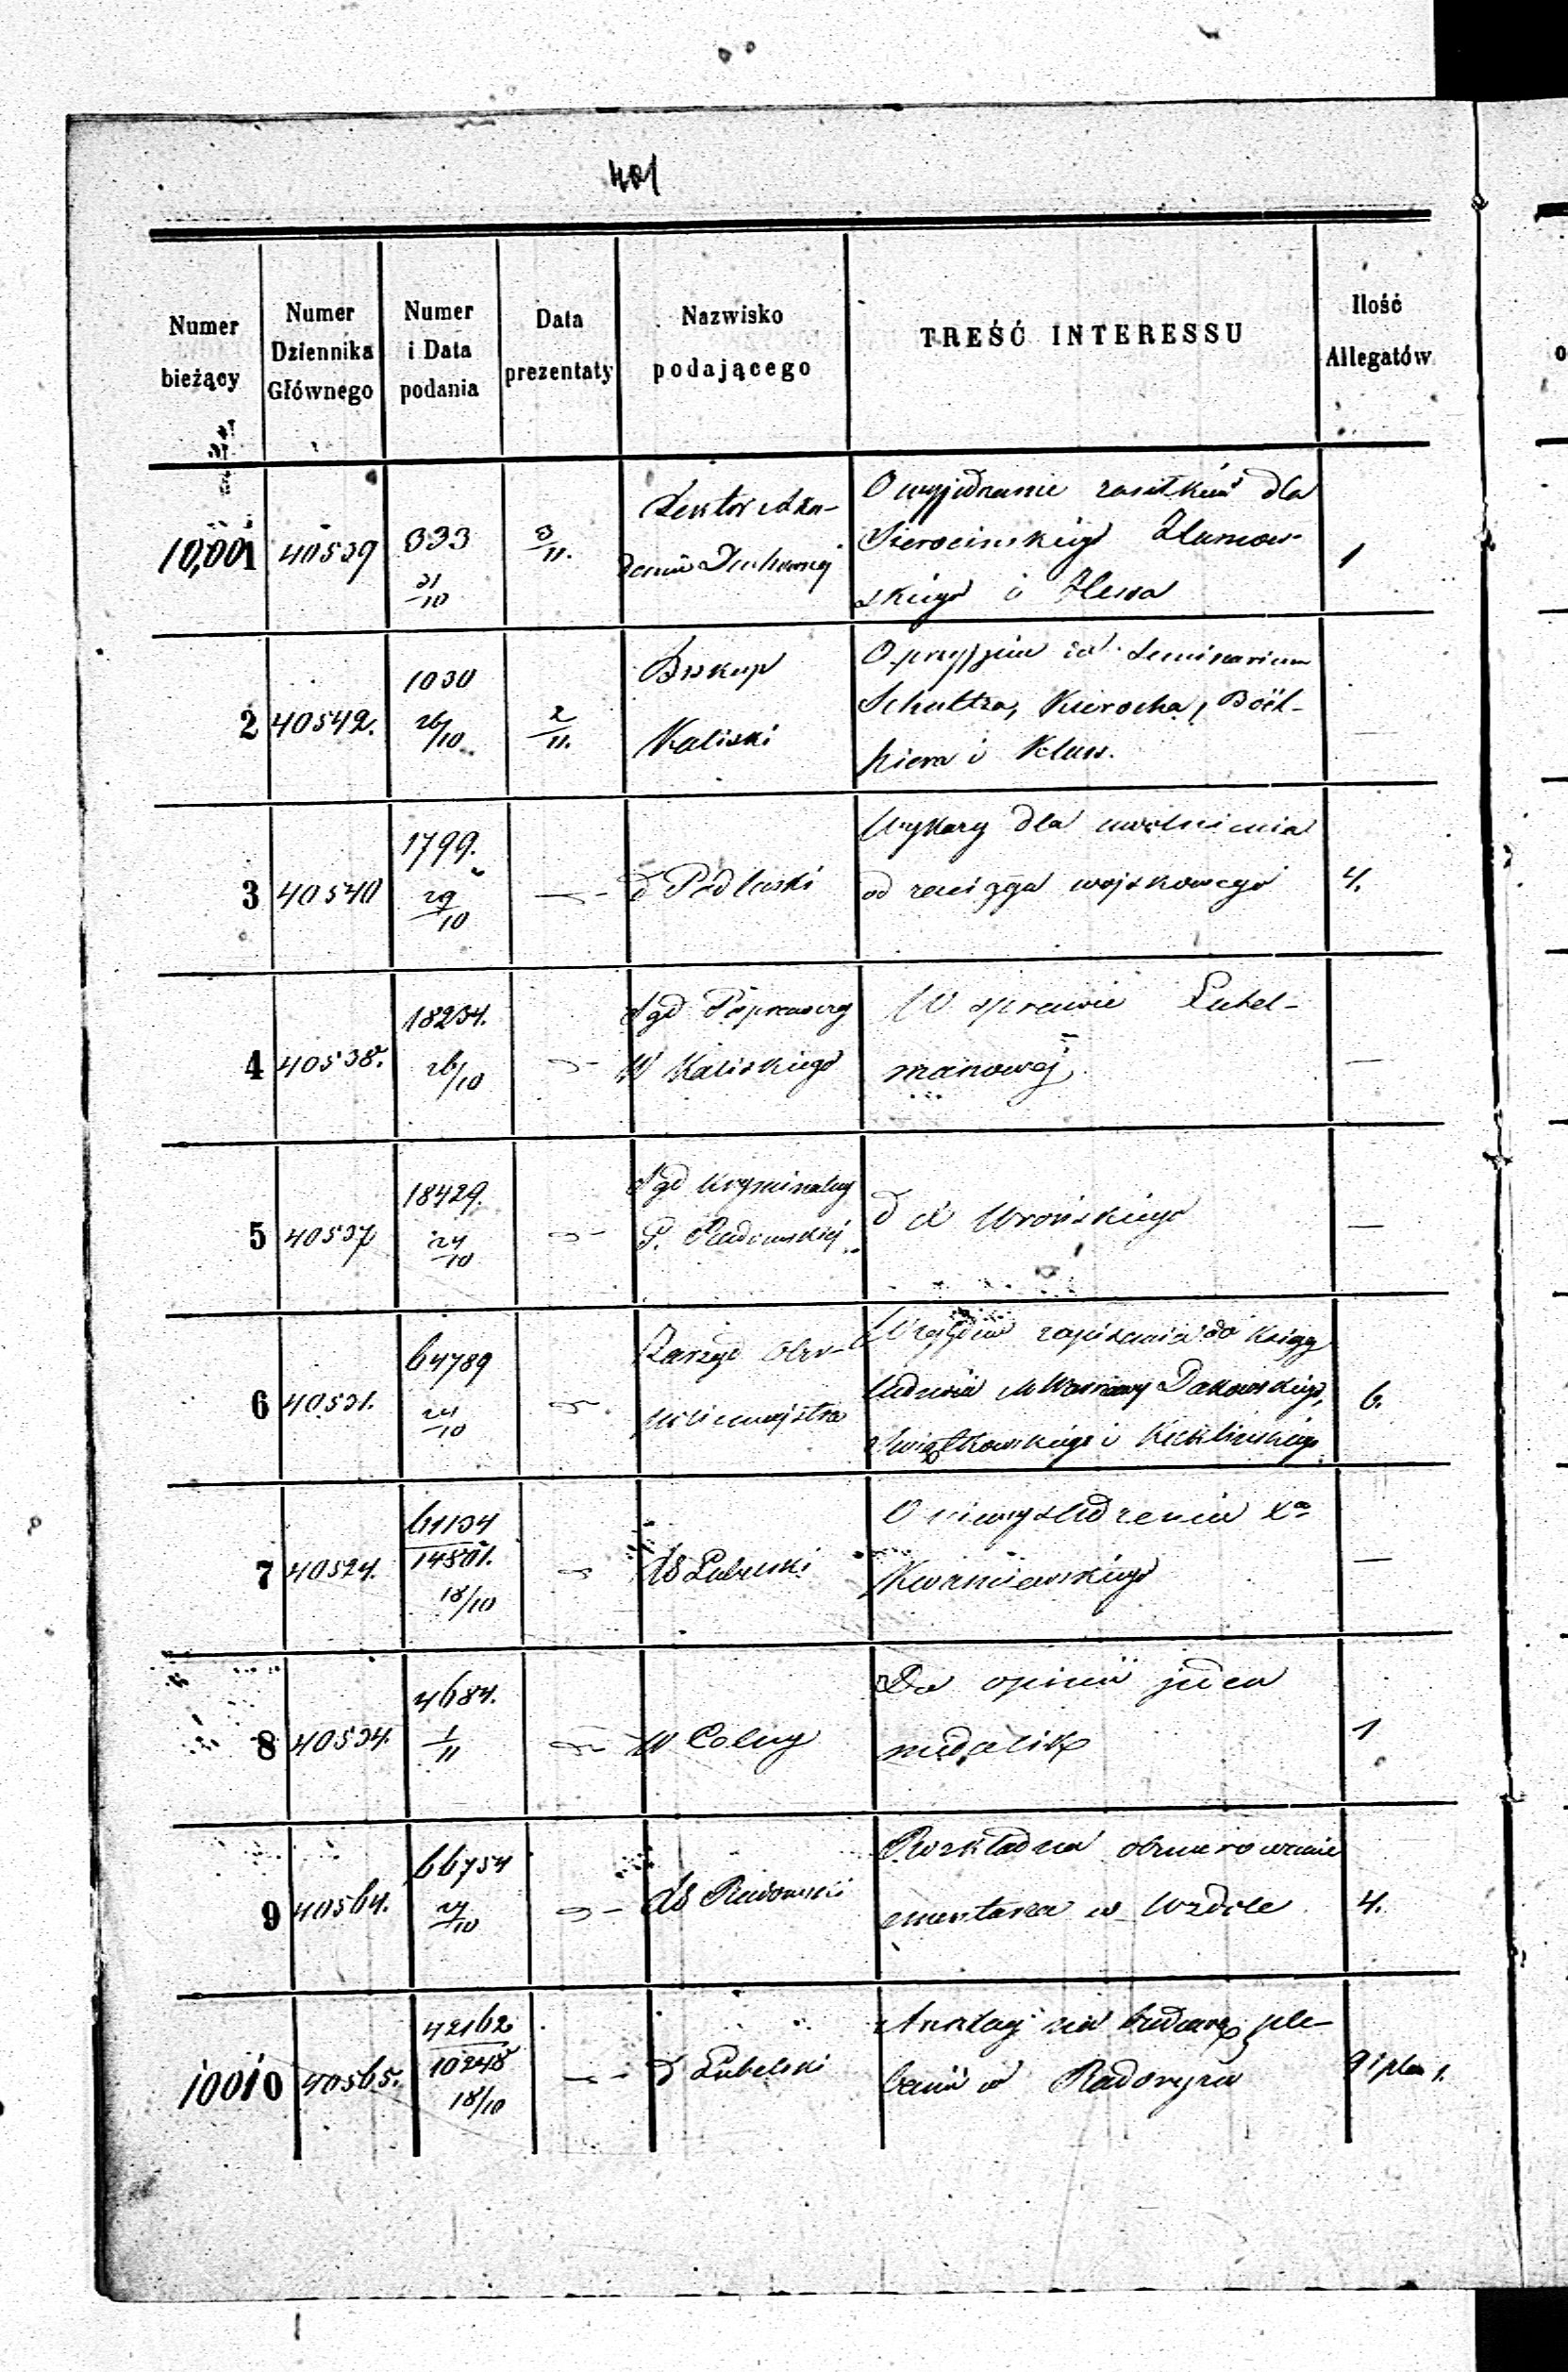 401
Numer bieżący
Numer Dziennika Głównego
Numer i Data podania
Data prezentaty
Nazwisko podającego
TREŚĆ INTERESSU
Ilość Allegatów
10,001
40539
333
31/10
3/11.
Rektor Aka-
demii Duchownej
O wyjednanie zasiłków dla
Sierocinskiego
skiego i Hessa
1
2
40542.
1030
26/10
2/11.
Biskup
Kaliski
O przyjęciu do Seminarium
Schultza, Kierocha,
i Kluss.
3
40540
1799.
29/10
d Podlaski
Wykazy dla uwolnienia
od zaciągu wojskowego
4.
4
40538.
18234.
26/10
Sąd Poprawczy
W Kaliskiego
W sprawie Lubel-
manowej
—
5
40537
18429.
24/10
Sąd Kryminalny
G. Radomskiej
d d Wrońskiego
—
6
40531.
64789
24/10
Zarząd Ober-
policmajstra
Względem zapisania do Księgi
ludności M Warszawy Dakowskiego,
Świątkowskiego i
6.
7
40524.
61134
14801.
18/10
RG Lubelski
O niewyśledzeniu Xa
Kwaśniewskiego
—
8
40534.
4684.
1/11
W Celny
Do opinii jeden
medalik
1
9
40564.
66754
24/10
RG Radomski
Rozkład na obmurowanie
cmentarza w Wzdole
4.
10010
40565.
42162
10248
18/10
d Lubelski
Anszlag na budowę ple-
banii w Radoryżu
9 i plan 1.